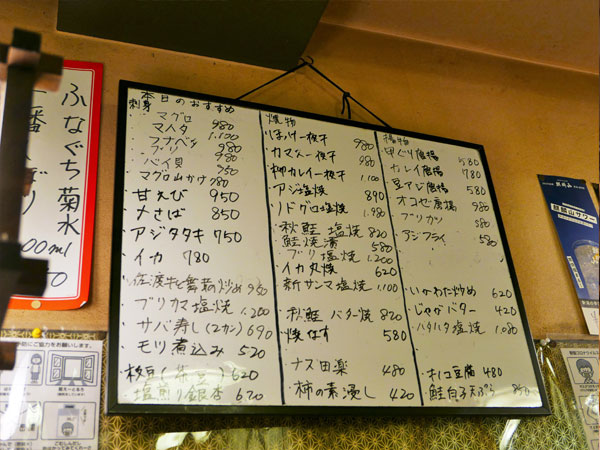 本日のおすすめ
刺身
マグロ 980
マハタ 1.100
ブリ 980
バイ貝 950
マグロ山かけ 980
甘えび 950
〆さば 850
アジタタキ 750
イカ 780
佐渡牛と舞茸の炒め 980
ブリカマ塩焼 1.200
サバ寿し(2カン) 690
モツ煮込み 520
枝豆(茶豆) 620
塩煎り銀杏 620
焼物
980
カマス一夜干 980
柳カレイ一夜干 1.100
アジ塩焼 890
ノドグロ塩焼 1.980
秋鮭 塩焼 820
鮭焼漬 580
ブリ 塩焼 1.200
イカ丸焼 620
新サンマ塩焼 1.100
秋鮭 バター焼 820
焼なす 580
ナス田楽 480
柿の素浸し 420
揚物
580
カレイ唐揚 780
豆アジ唐揚 580
オコゼ唐揚 980
ブリカツ 880
アジフライ 580
いかわた炒め 620
じゃがバター 420
ハタハタ塩焼 1.080
キノコ豆腐 480
鮭白子天ぷら 850
ふなぐち菊水
一番